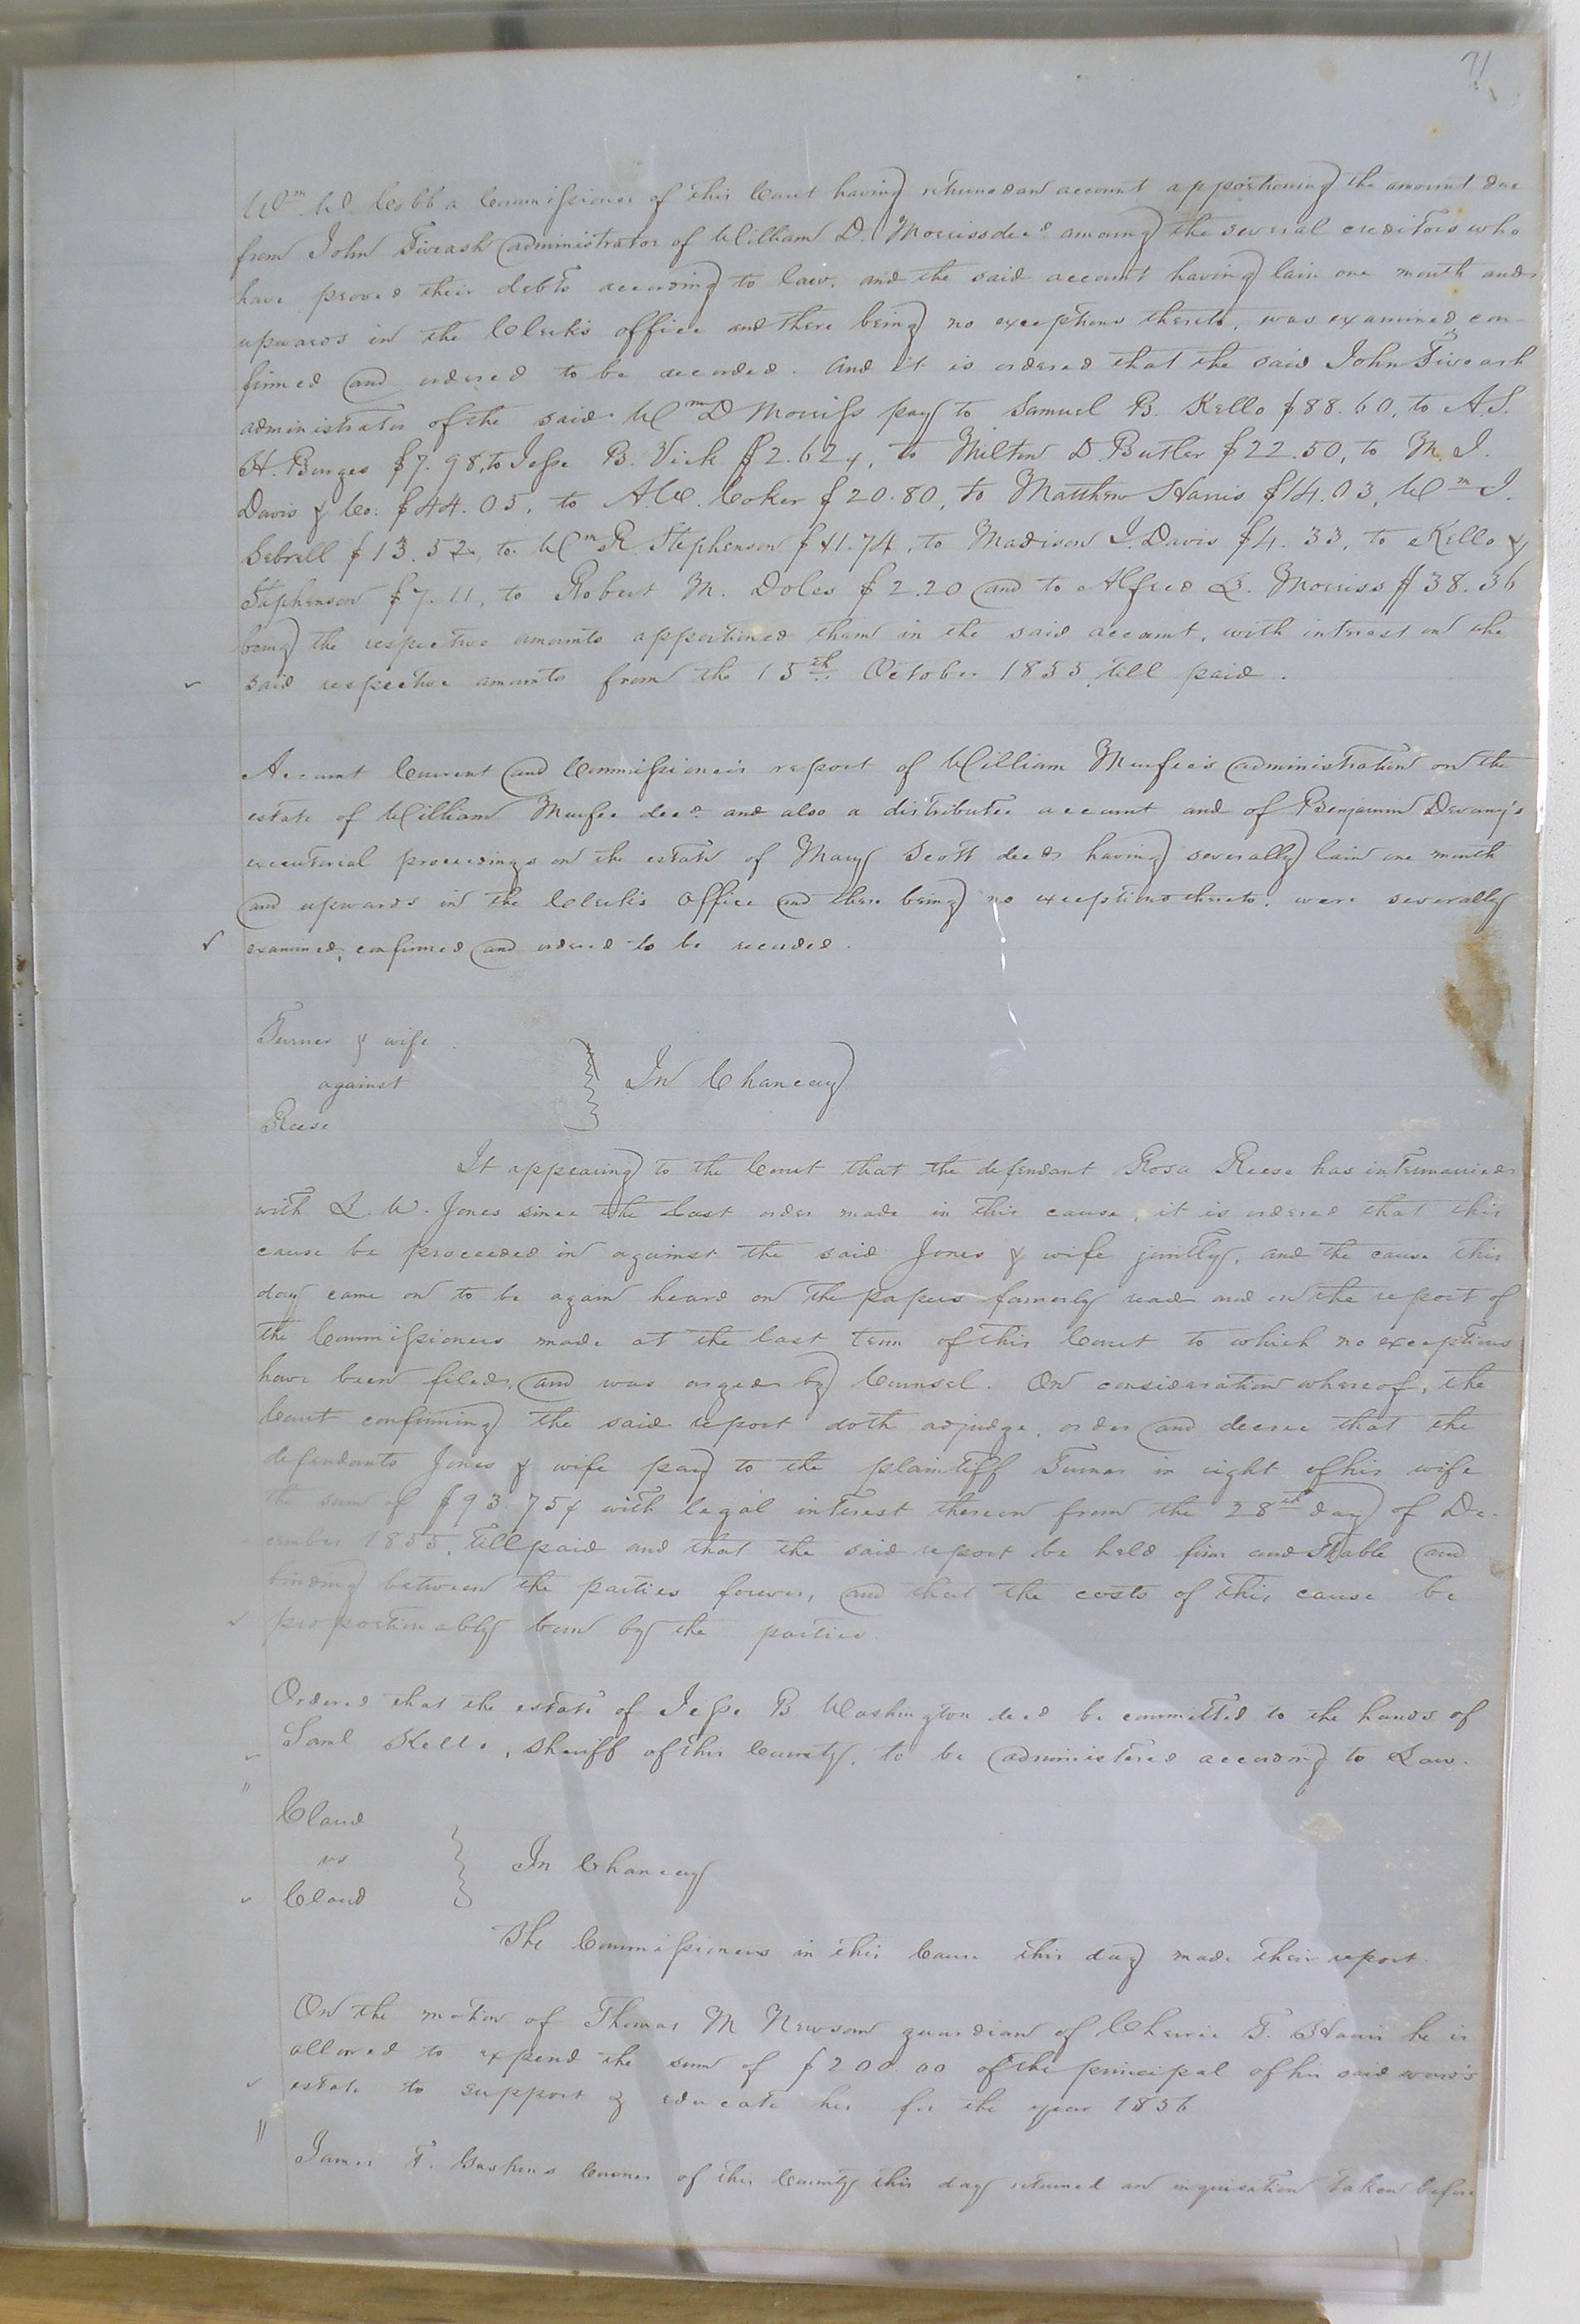 71
Wm. W. Cobb a Commissioner of this Court having returned an account apportioning the amount due
from John Fiveash administrator of William D. Morriss decd. among the several creditors who
have proved their debts according to law, and the said account having lain one month and
upwards in the Clerk's office and there being no exceptions thereto, was examined, con-
firmed and ordered to be recorded. And it is ordered that the said John Fiveash
administrator of the said Wm D Morriss pay to Samuel B. Kello $88.60, to A.S.
H. Burges $7.98, to Jesse B. Vick $2.62¢, to Milton D. Butler $22.50, to M. J.
Davis & Co. $44.05, to A.C. Coker $20.80, to Matthew Harris $14.03, Wm J.
Sebrell $13.52, to Wm R. Stephenson $41.74, to Madison J. Davis $4.33, to Kello &
Stephenson $7.11, to Robert M. Doles $2.20 and to Alfred L. Morriss $38.36
being the respective amounts apportioned them in the said account, with interest on the
said respective amounts from the 15th October 1855 till paid.
Account Current and Commissioner's report of William Murfee's administration on the
estate of William Murfee decd. and also a distributee account and of Benjamin Devany's
executorial proceedings on the estate of Mary Scott decd having severally lain one month
and upwards in the Clerk's office and there being no exceptions thereto, were severally
examined, confirmed and ordered to be recorded.
Turner & wife
against } In Chancery
Reese
It appearing to the Court that the defendant Rosa Reese has intermarried
with L. W. Jones since the last order made in this cause, it is ordered that this
cause be proceeded in against the said Jones & wife jointly, and the cause this
day came on to be again heard on the papers formerly read and on the report of
the Commissioners made at the last term of this Court to which no exceptions
have been filed, and was argued by Counsel. On consideration whereof, the
Court confirming the said report doth adjudge, order and decree that the
defendants Jones & wife pay to the plaintiff Turner in right of his wife
the sum of $93.75¢ with legal interest thereon from the 28th day of De-
cember 1855, till paid and that the said report be held firm and stable and
binding between the parties forever, and that the costs of this cause be
proportionably born by the parties.
Ordered that the estate of Jesse B. Washington decd be committed to the hands of
Saml Kello, Sheriff of this County, to be administered according to Law.
Claud
vs } In Chancery
Claud
The Commissioners in this Cause this day made their report.
On the motion of Thomas M Newsom guardian of Cherrie T. Harris he is
allowed to expend the sum of $200.00 of the principal of his said ward's
estate to support & educate her for the year 1856
James F. Gaskins Coroner of this County this day returned an inquisition taken before